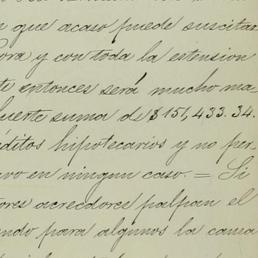 n que acaso puede suscitar
ora y con toda la extension
te entonces será mucho ma
fuerte suma de $151,433.34.
éditos hipotecarios y no per
avo en ningun caso. = Si
ores acreedores palpan el
endo para algunos la causa